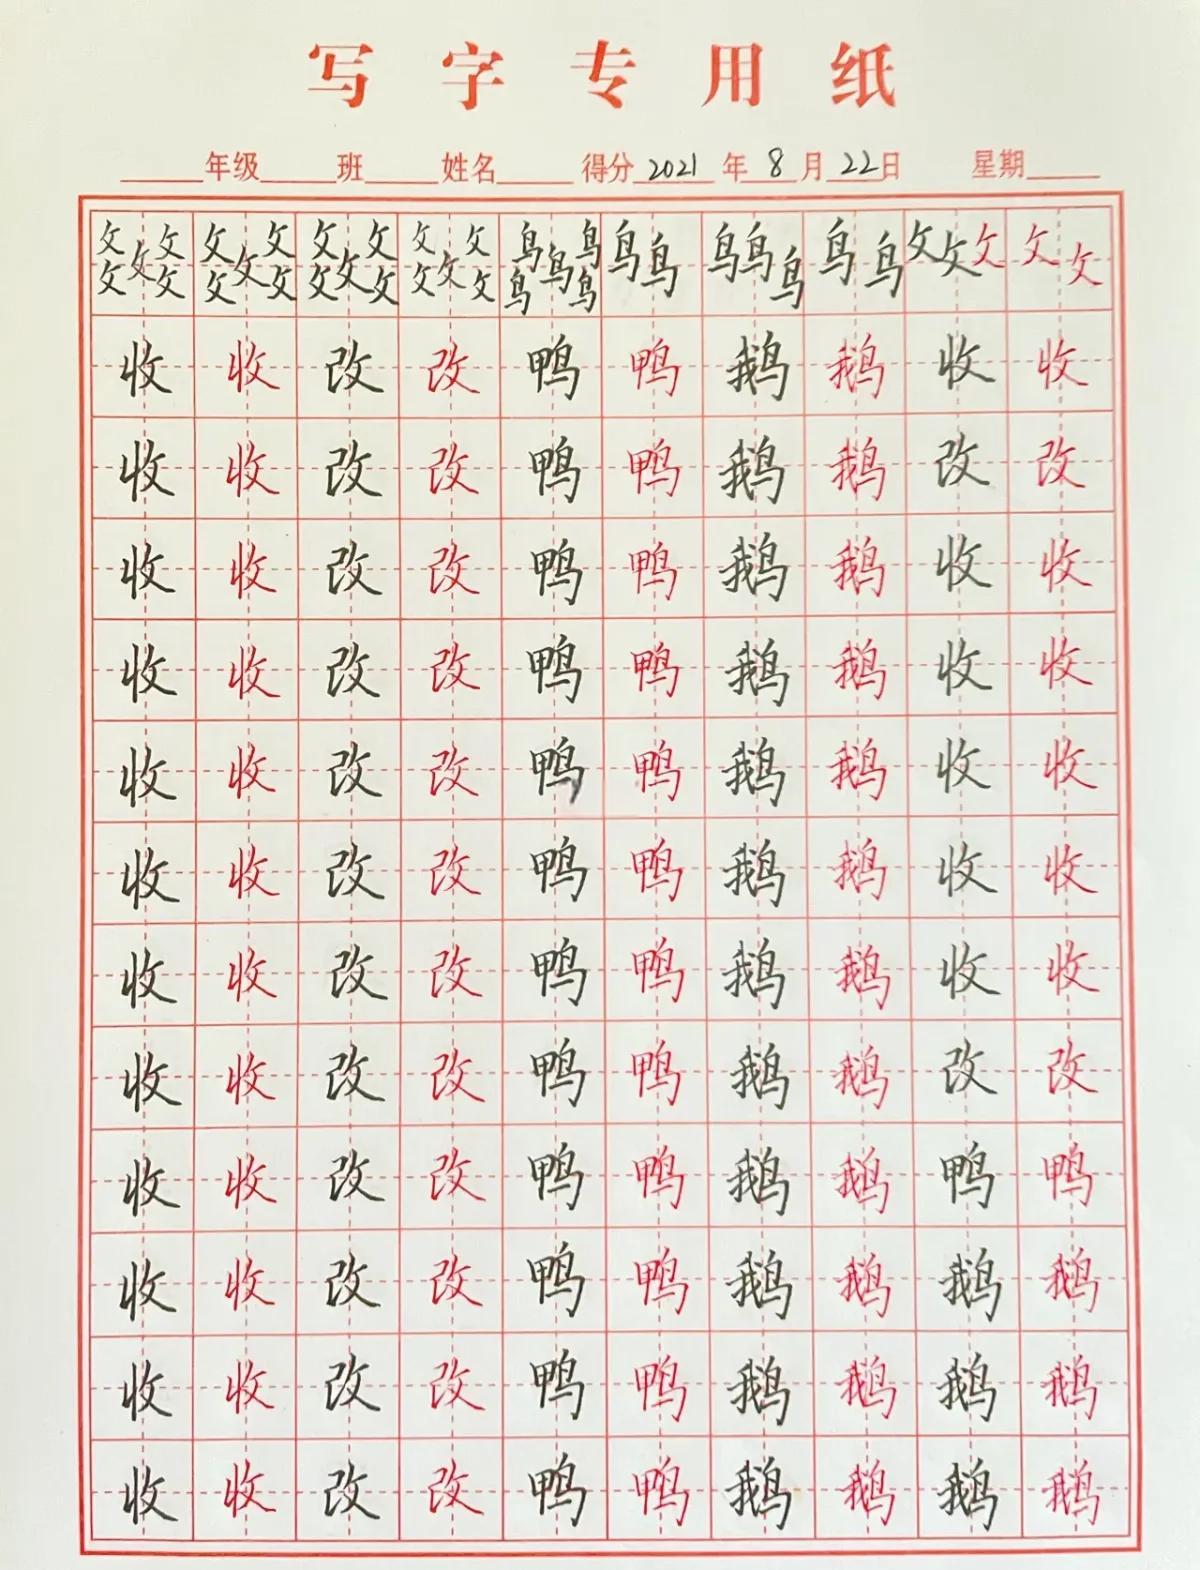 写字专用纸
年级 班 姓名 得分 2021 年 8 月 22 日 星期
攵攵攵攵攵 攵攵攵攵攵 攵攵攵攵攵 攵攵攵攵攵 鸟鸟鸟鸟鸟 鸟鸟 鸟鸟鸟 鸟鸟 攵攵攵 攵攵
收 收 改 改 鸭 鸭 鹅 鹅 收 收
收 收 改 改 鸭 鸭 鹅 鹅 改 改
收 收 改 改 鸭 鸭 鹅 鹅 收 收
收 收 改 改 鸭 鸭 鹅 鹅 收 收
收 收 改 改 鸭 鸭 鹅 鹅 收 收
收 收 改 改 鸭 鸭 鹅 鹅 收 收
收 收 改 改 鸭 鸭 鹅 鹅 收 收
收 收 改 改 鸭 鸭 鹅 鹅 改 改
收 收 改 改 鸭 鸭 鹅 鹅 鸭 鸭
收 收 改 改 鸭 鸭 鹅 鹅 鹅 鹅
收 收 改 改 鸭 鸭 鹅 鹅 鹅 鹅
收 收 改 改 鸭 鸭 鹅 鹅 鹅 鹅